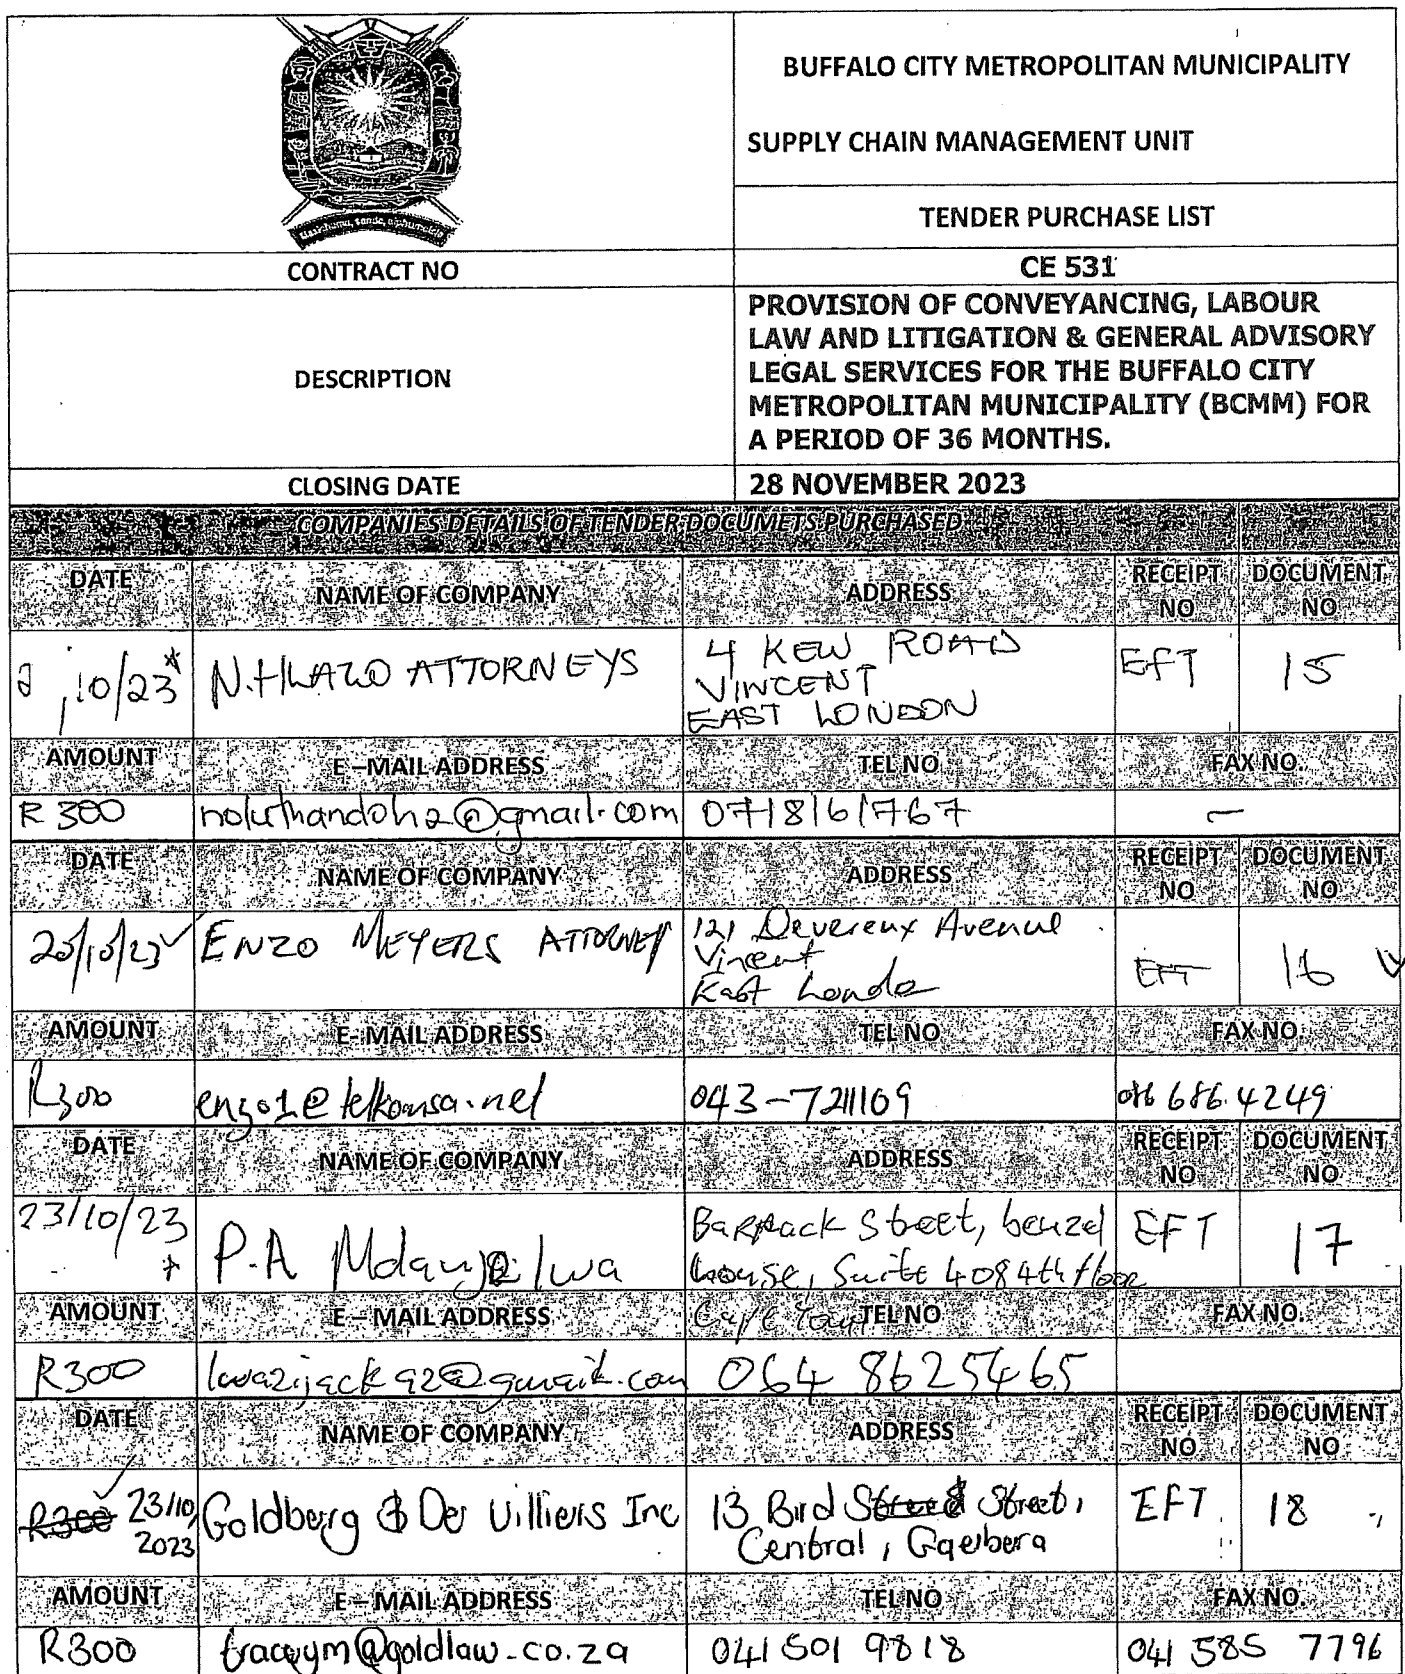 BUFFALO CITY METROPOLITAN MUNICIPALITY
SUPPLY CHAIN MANAGEMENT UNIT
TENDER PURCHASE LIST
CONTRACT NO CE 531
DESCRIPTION
PROVISION OF CONVEYANCING, LABOUR
LAW AND LITIGATION & GENERAL ADVISORY
LEGAL SERVICES FOR THE BUFFALO CITY
METROPOLITAN MUNICIPALITY (BCMM) FOR
A PERIOD OF 36 MONTHS.
CLOSING DATE 28 NOVEMBER 2023
COMPANIES DETAILS OF TENDER DOCUMETS PURCHASED
DATE NAME OF COMPANY ADDRESS RECEIPT NO DOCUMENT NO
10/23* N.HLAZO ATTORNEYS 4 KEW ROAD EFT 15
VINCENT
EAST LONDON
AMOUNT E-MAIL ADDRESS TEL NO FAX NO.
R 300 noluthandoh2@gmail.com 0718161767 -
DATE NAME OF COMPANY ADDRESS RECEIPT NO DOCUMENT NO
20/10/23 ENZO MEYERS ATTORNEY 121 Devereux Avenue EFT 16
Vincent
East London
AMOUNT E-MAIL ADDRESS TEL NO FAX NO.
R300 enzo1@telkomsa.net 043-7211109 086 686 4249
DATE NAME OF COMPANY ADDRESS RECEIPT NO DOCUMENT NO
23/10/23 * P.A Street, benzel EFT 17
house, Suite 408 4th floor
Cape Town
AMOUNT E-MAIL ADDRESS TEL NO FAX NO.
R300 lwazijack92@gmail.com 064 8625465
DATE NAME OF COMPANY ADDRESS RECEIPT NO DOCUMENT NO
R300 23/10/2023 Goldberg & De Villiers Inc 13 Bird Street Street, EFT 18
Central, Gqeibera
AMOUNT E-MAIL ADDRESS TEL NO FAX NO.
R300 traceym@goldlaw.co.za 041 501 9818 041 585 7796